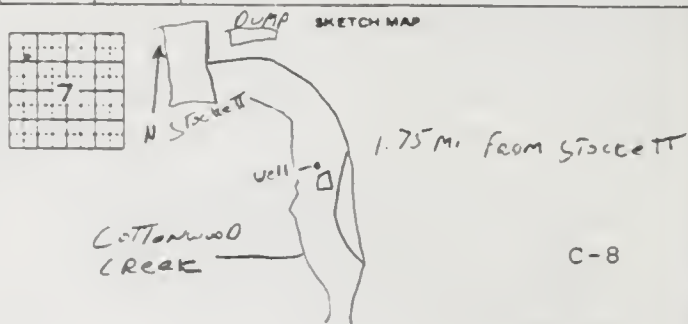 DUMP
SKETCH MAP
7
N
Stockett
1.75 Mi From Stockett
well
Cottonwood
Creek
C-8